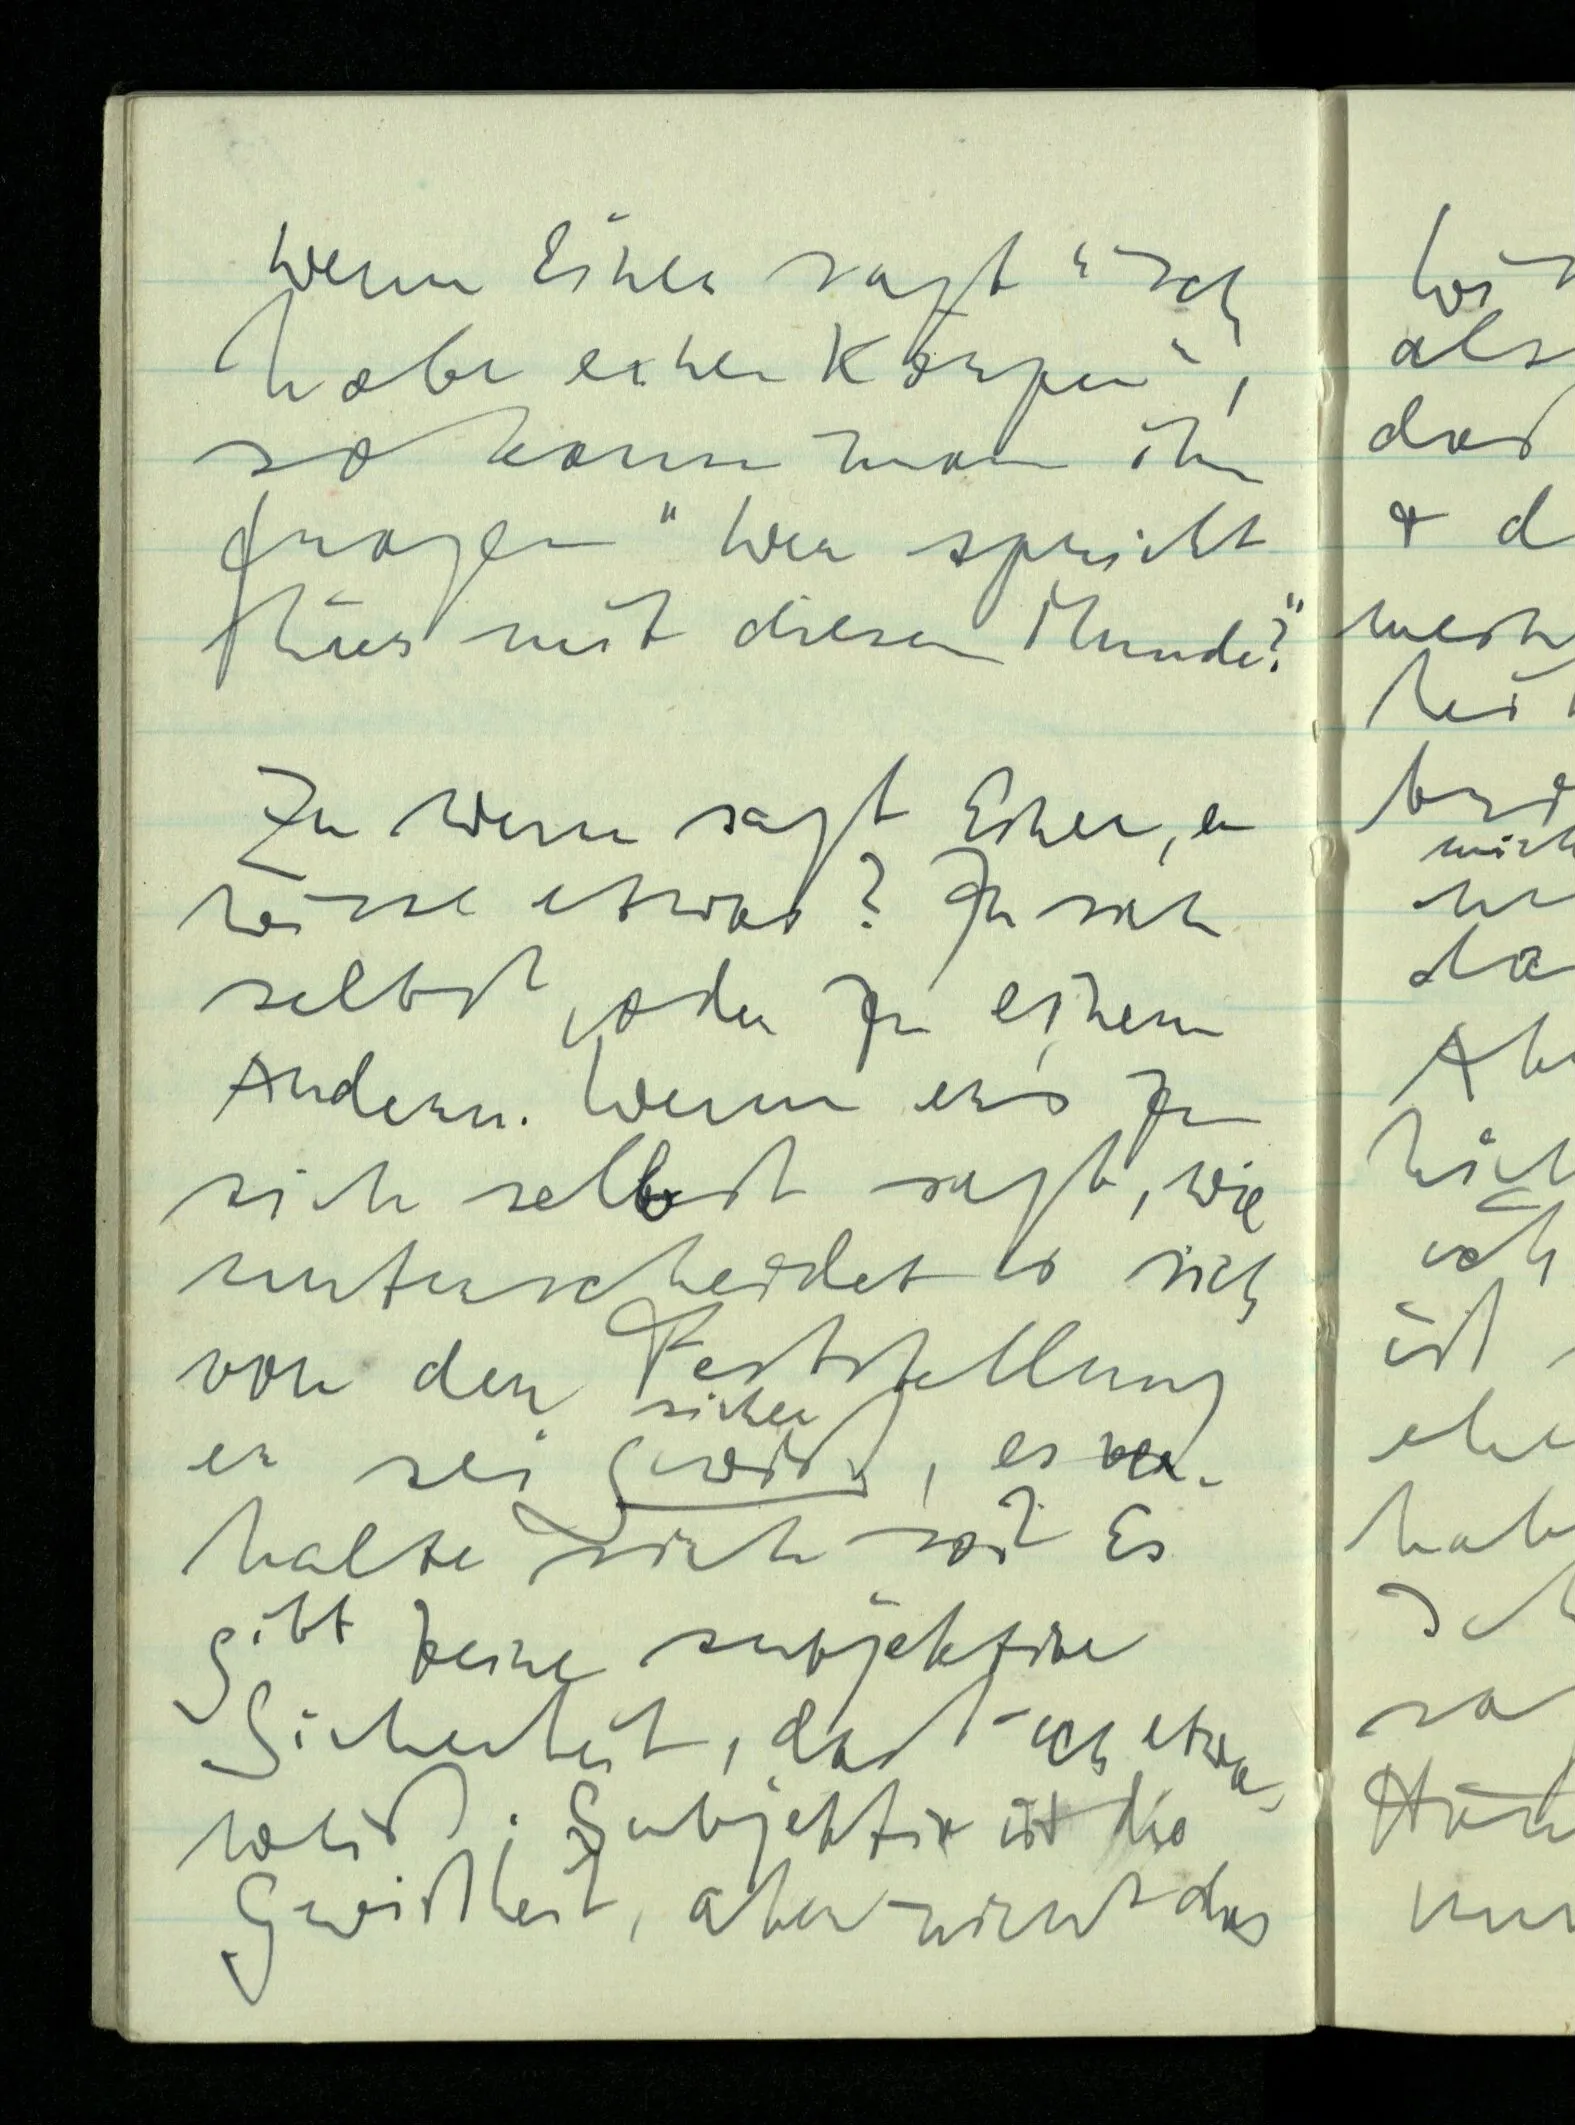 Wenn Einer sagt "ich
habe einen Körper",
so kann man ihn
fragen "Wer spricht
hier mit diesem Munde?"
Zu wem sagt Einer, er
wisse etwas? Zu sich
selbst, oder zu einem
Andern. Wenn er's zu
sich selbst sagt, wie
unterscheidet es sich
von der Feststellung
sicher
er sei gewiß, es ver-
halte sich so? Es
gibt keine subjektive
Sicherheit, daß ich etwas
weiß. Subjektiv ist die
Gewißheit, aber nicht das
als
daß
& d
ich
ist